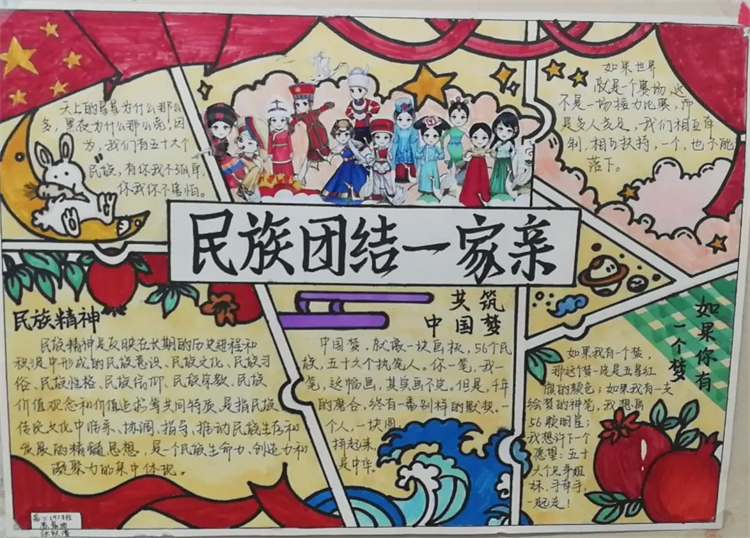 天上的星星为什么那么
多，黑夜为什么那么亮！因
为，我们有五十六个
民族，有你我不孤单，
伴我你不害怕。
如果世界
是个赛场，这
不是一场接力比赛，而
是多人多足，我们相互牵
制，相互扶持，一个，也不能
落下。
民族团结一家亲
民族精神
民族精神是反映在长期的历史进程和
积淀中形成的民族意识、民族文化、民族习
俗、民族性格、民族信仰、民族宗教、民族
价值观念和价值追求等共同特质，是指民族
传统文化中维系、协调、指导、推动民族生存和
发展的精髓思想，是一个民族生命力、创造力和
凝聚力的集中体现。
共筑
中国梦
中国梦，就像一块画板，56个民
族，五十六个执笔人，你一笔，我一
笔，这幅画，其实画不完，但是，千年
的磨合，终有一番别样的默契。一
个人，一块图
拼起来，
是中华。
如果你有
一个梦
如果我有一个梦，
那这个梦一定是五星红
旗的颜色；如果我有一支
绘梦的神笔，我想画
56颗明星；
我想许下一个
愿望：五十
六个兄弟姐
妹，手牵手，
一起走！